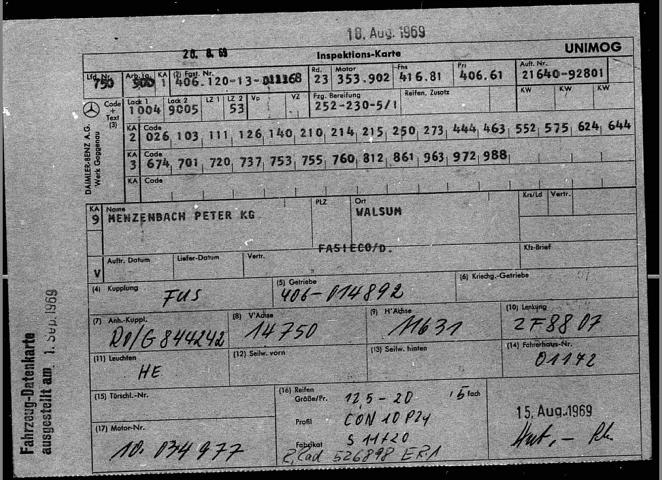 18. Aug. 1969
20. 8. 69
Inspektions-Karte
UNIMOG
Lfd. Nr. Arb. tg. KA (2) Fgst. Nr. Rd. Motor Fhs Pri Auft. Nr.
750 900 1 406.120-13-011168 23 353.902 416.81 406.61 21640-92801
Code + Text (3) Lack 1 Lack 2 LZ 1 LZ 2 Vp VZ Fzg. Bereifung Reifen, Zusatz KW KW KW
1004 9005 53 252-230-5/1
DAIMLER-BENZ A.G.
Werk Gaggenau
KA Code
2 026 103 111 126 140 210 214 215 250 273 444 463 552 575 624 644
KA Code
3 674 701 720 737 753 755 760 812 861 963 972 988
KA Code
KA Name PLZ Ort Krs/Ld Vertr.
9 MENZENBACH PETER KG WALSUM
FASIECO/D.
V Auftr. Datum Liefer-Datum Vertr. Kfz-Brief
(4) Kupplung (5) Getriebe (6) Kriechg.-Getriebe
FUS 406-014892
(7) Anh.-Kuppl. (8) V'Achse (9) H'Achse (10) Lenkung
844242 14750 11631 ZF8807
(11) Leuchten (12) Seilw. vorn (13) Seilw. hinten (14) Fahrerhaus-Nr.
HE 01172
(15) Türschl.-Nr. (16) Reifen
Größe/Pr. 12,5-20 5 fach
Profil CON 10 P24
15. Aug. 1969
(17) Motor-Nr. Fabrikat S 11+20
10. 034977 526898
Fahrzeug-Datenkarte
ausgestellt am 1. Sep. 1969